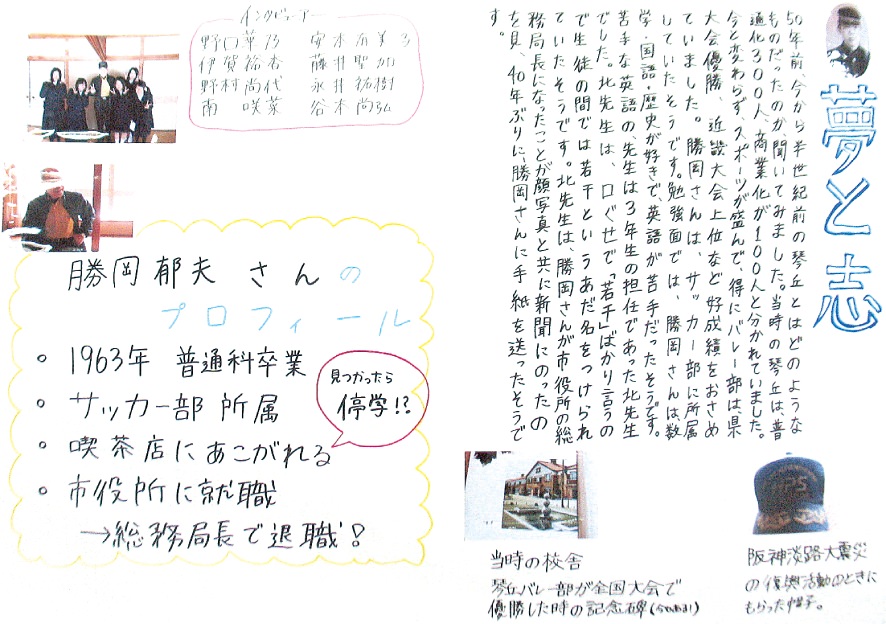 夢と志
50年前、今から半世紀前の琴丘とはどのような
ものだったのか、聞いてみました。当時の琴丘は、普
通化300人、商業化が100人と分かれていました。
今と変わらず、スポーツが盛んで、得にバレー部は、県
大会優勝、近畿大会上位など好成績をおさめ
ていました。勝岡さんは、サッカー部に所属
していたそうです。勉強面では、勝岡さんは、数
学・国語・歴史が好きで、英語が苦手だったそうです。
苦手な英語の、先生は3年生の担任であった北先生
でした。北先生は、口ぐせで「若干」ばかり言うの
で生徒の間では若干というあだ名をつけられ
ていたそうです。北先生は、勝岡さんが市役所の総
務局長になったことが顔写真と共に新聞にのったの
を見、40年ぶりに、勝岡さんに手紙を送ったそうで
す。
インタビュアー
野口華乃
伊賀裕香 藤井聖加
野村尚代 永井祐樹
南 咲菜 谷本尚弘
勝岡郁夫さんの
プロフィール
• 1963年 普通科卒業
• サッカー部所属
• 喫茶店にあこがれる
見つかったら
停学!?
• 市役所に就職
→総務局長で退職!
当時の校舎
琴丘バレー部が全国大会で
優勝した時の記念碑(今もあり!)
阪神淡路大震災
の復興活動のときに
もらった帽子。